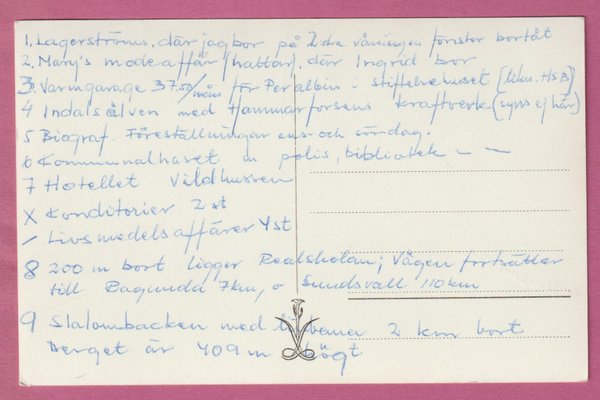 1. Lagerströms, där jag bor på 2:dra våningen fönster bortåt
2. Mary's modeaffär (hattar), där Ingrid bor
3. Varmgarage 37.50/mån för Per Albin i stiftelsehuset (likn. HSB)
4 Indalsälven med Hammarforsens kraftverk (syns ej här)
5 Biograf. Föreställningar ons- och söndag.
6 Kommunalhuset m polis, bibliotek — —
7 Hotellet Vildhussen
X Konditorier 2 st
/ Livsmedelsaffärer 4 st
8 200 m bort ligger Realskolan; Vägen fortsätter
till Ragunda 7 km, o Sundsvall 110 km
9 Slalombacken med 2 km bort
Berget är 409 m högt